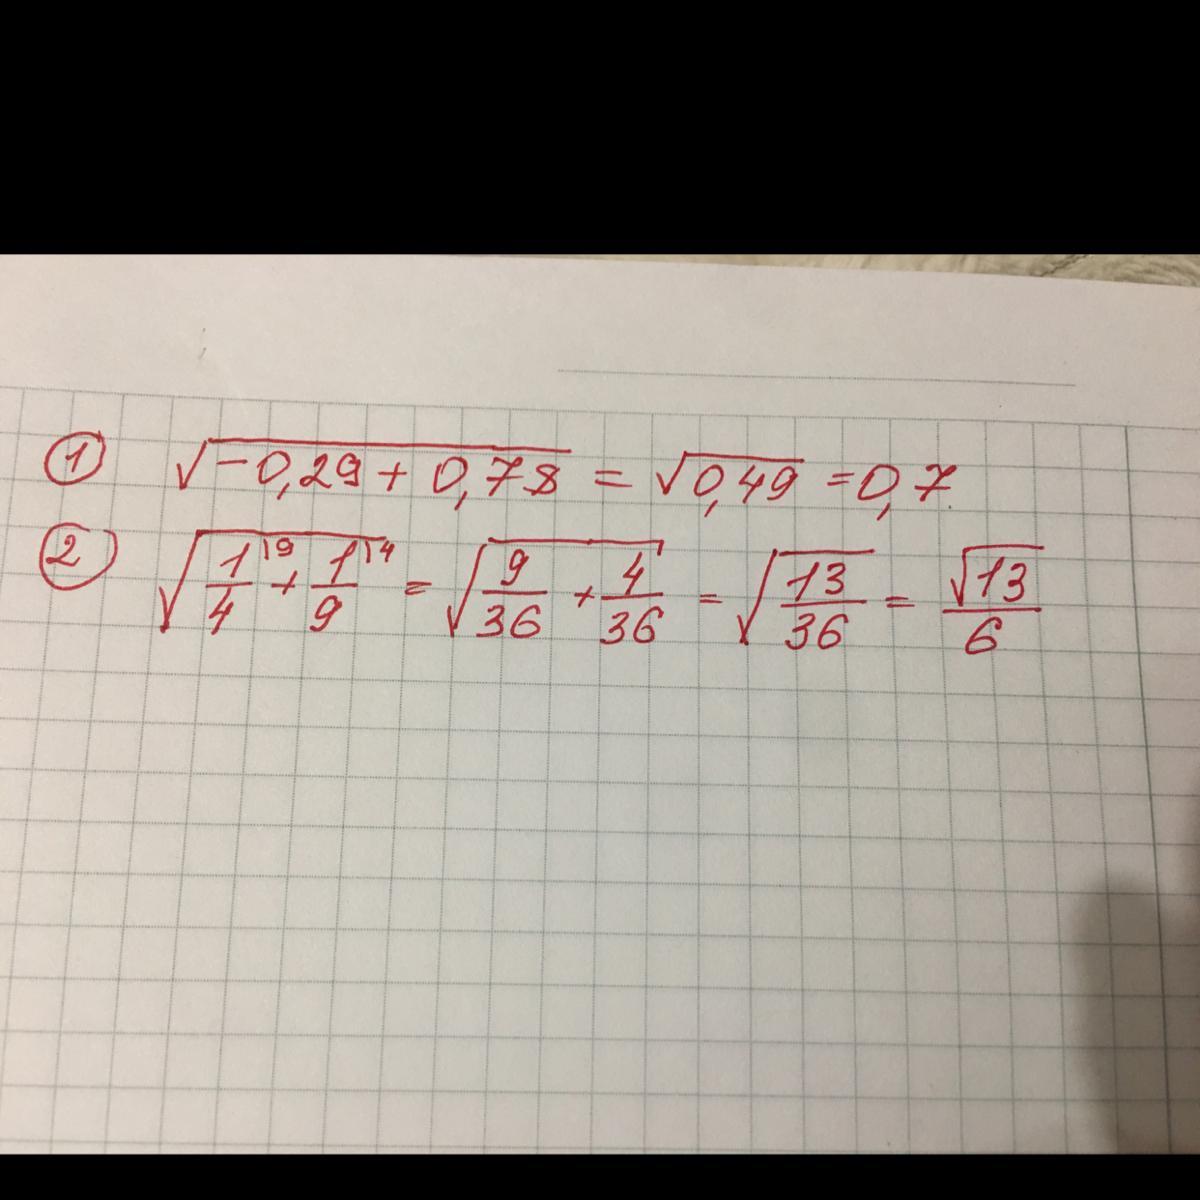 ① √(-0,29 + 0,78) = √0,49 = 0,7
② √(1/4 \9 + 1/9 \4) = √(9/36 + 4/36) = √(13/36) = √13/6